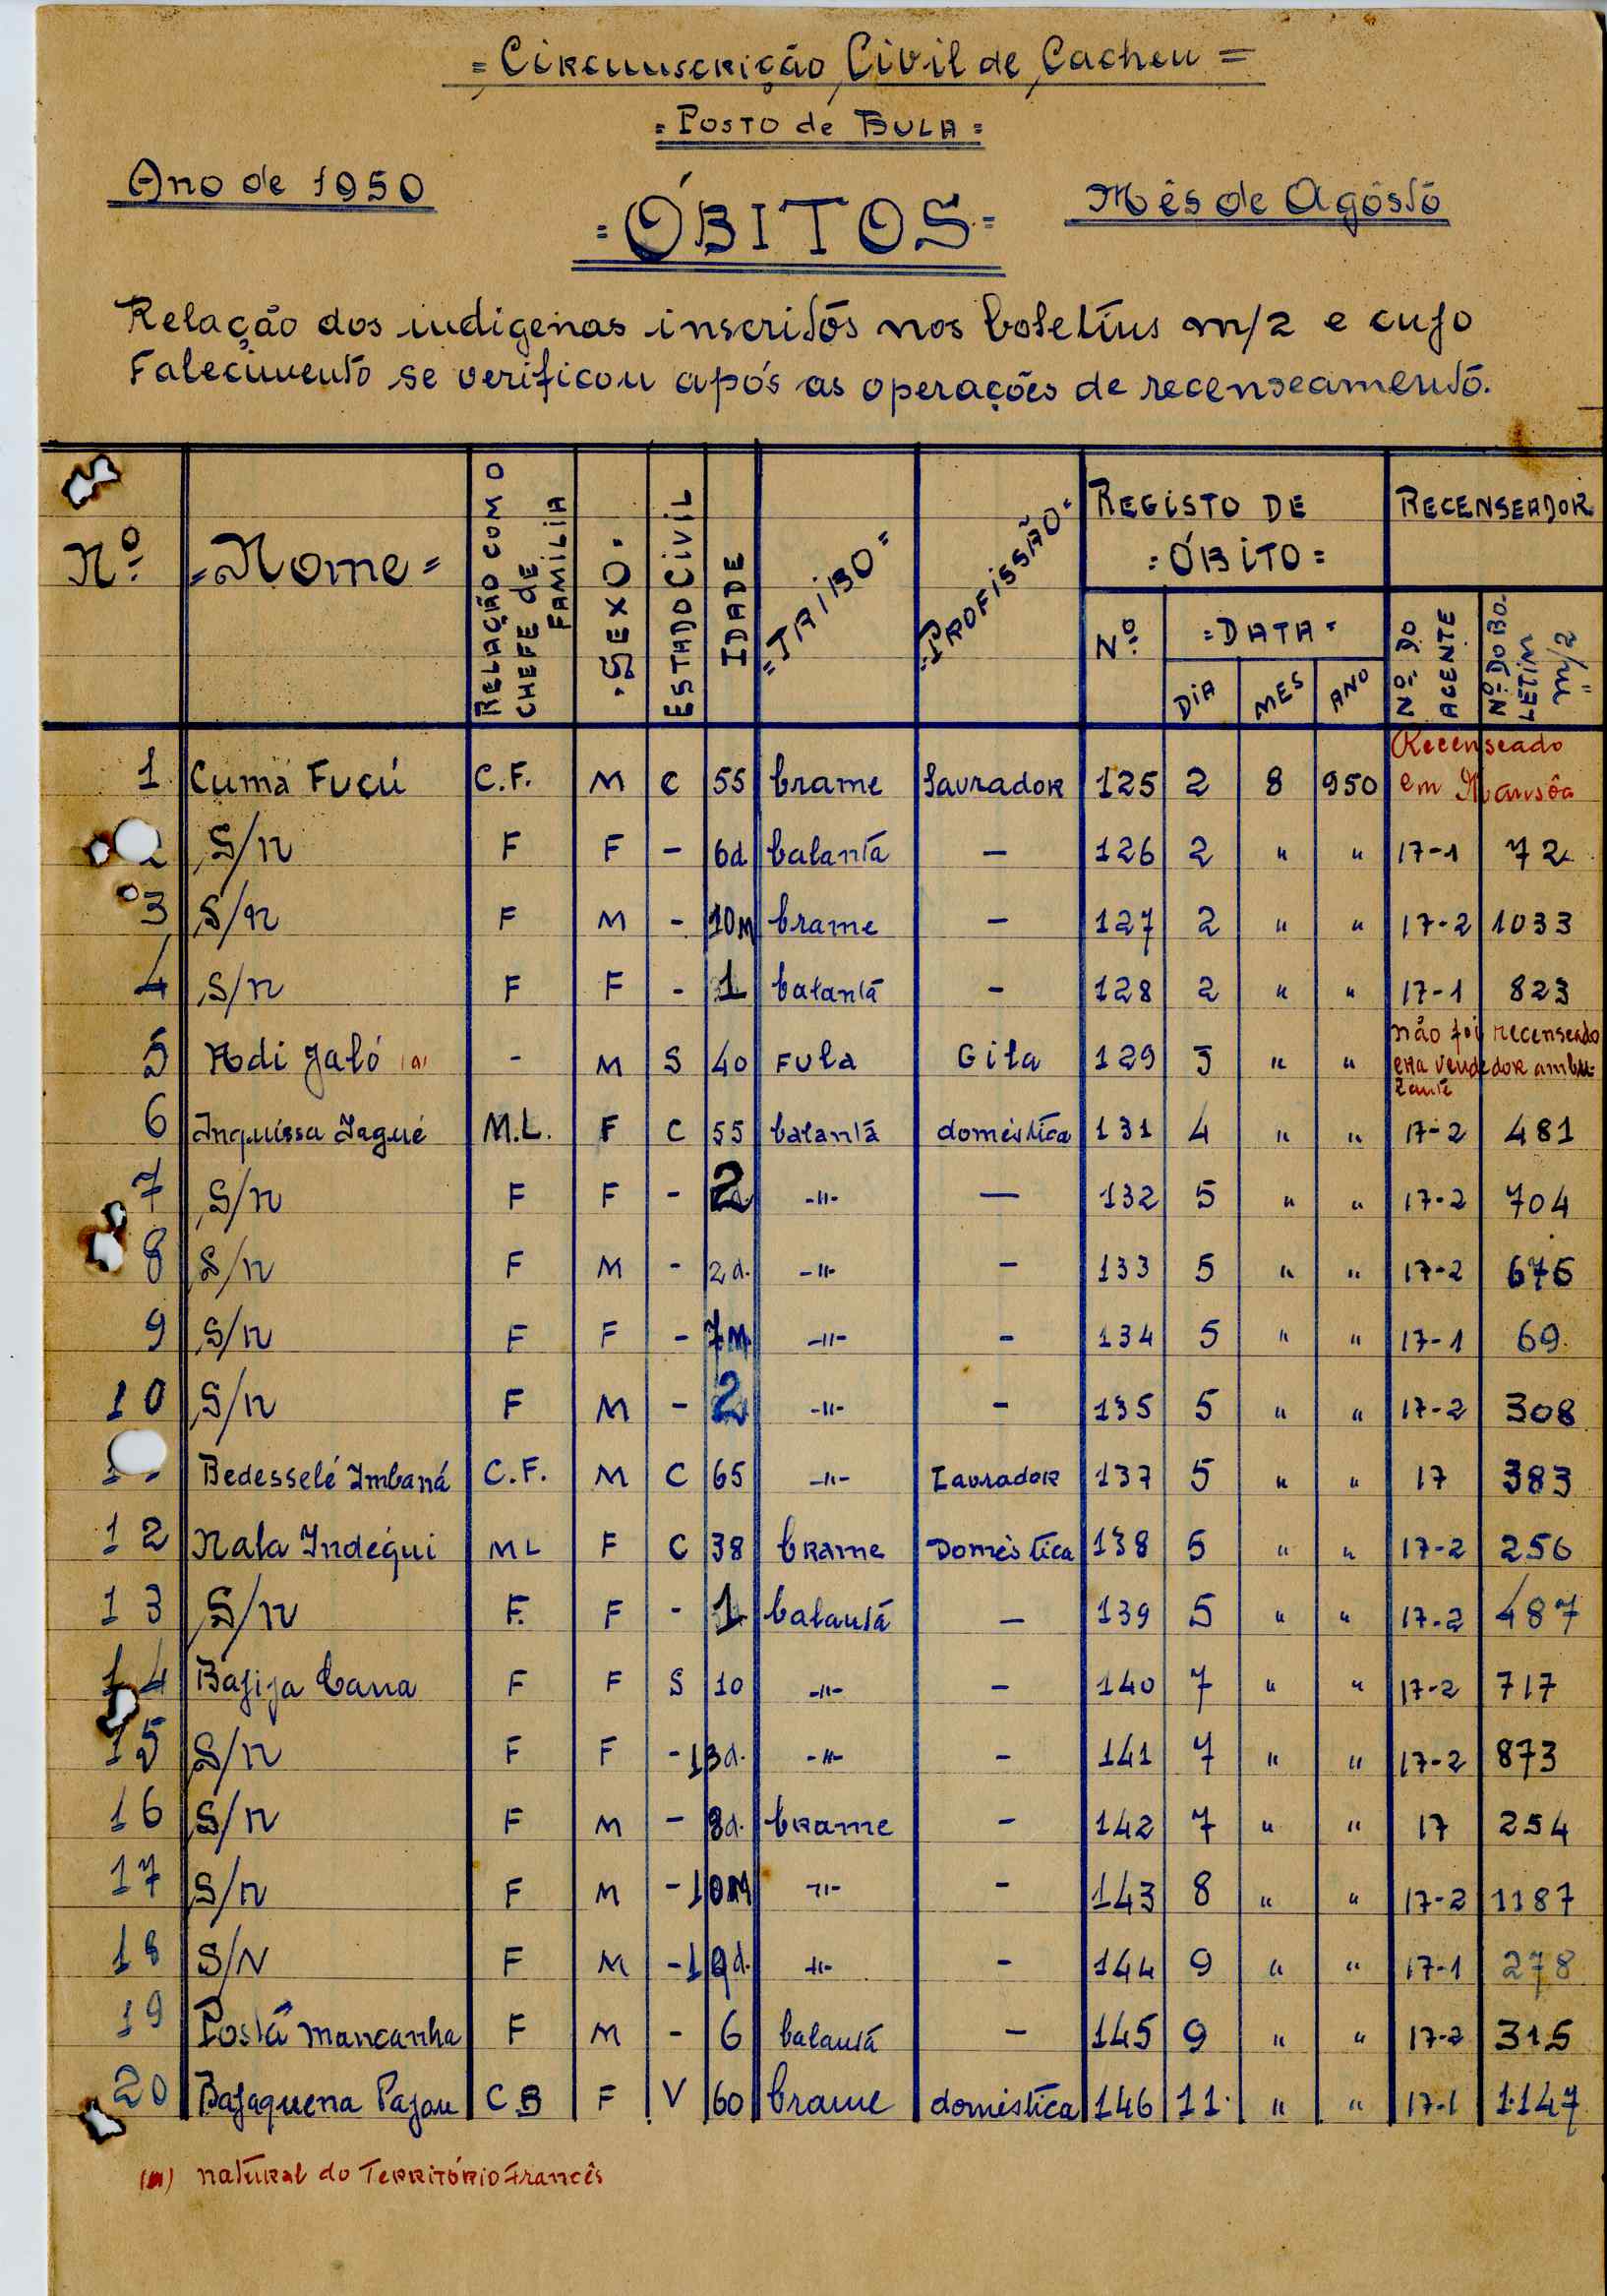 = Circunscrição Civil de Cacheu =
= Posto de BULA =
Ano de 1950
= ÓBITOS =
Mês de Agôsto
Relação dos indigenas inscritos nos boletins m/2 e cujo
Falecimento se verificou após as operações de recenseamento.
Nº
= Nome =
RELAÇÃO COM O CHEFE de FAMILIA
SEXO
ESTADO CIVIL
IDADE
= TRIBO =
= PROFISSÃO =
REGISTO DE = ÓBITO =
RECENSEADOR
Nº
= DATA =
DIA
MES
ANO
Nº DO AGENTE
Nº DO BOLETIM m/2
1 Cumá Fuçú C.F. M C 55 brame Lavrador 125 2 8 950 Recenseado em Mansôa
2 S/n F F - 6d balanta - 126 2 " " 17-1 72
3 S/n F M - 10M brame - 127 2 " " 17-2 1033
4 S/n F F - 1 balanta - 128 2 " " 17-1 823
5 Adi Jaló (a) - M S 40 Fula Gila 129 3 " " não foi recenseado era vendedor ambulante
6 Inquissa Iagué M.L. F C 55 balanta doméstica 131 4 " " 17-2 481
7 S/n F F - 2 -"- - 132 5 " " 17-2 704
8 S/n F M - 2d. -"- - 133 5 " " 17-2 676
9 S/n F F - 7M. -"- - 134 5 " " 17-1 69.
10 S/n F M - 2 -"- - 135 5 " " 17-2 308
Bedesselé Imbaná C.F. M C 65 -"- Lavrador 137 5 " " 17 383
12 Nala Indequi ML F C 38 brame Doméstica 138 5 " " 17-2 256
13 S/n F. F - 1 balanta - 139 5 " " 17-2 487
14 Bajija Cana F F S 10 -"- - 140 7 " " 17-2 717
15 S/n F F - 13d. -"- - 141 7 " " 17-2 873
16 S/n F M - 8d. brame - 142 7 " " 17 254
17 S/n F M - 10M -"- - 143 8 " " 17-2 1187
18 S/N F M - 19d. -"- - 144 9 " " 17-1 278
19 Postá Mancanha F M - 6 balanta - 145 9 " " 17-2 315
20 Bajaquena Pajau C B F V 60 brame doméstica 146 11 " " 17-1 1.147
(a) natural do Território Francês